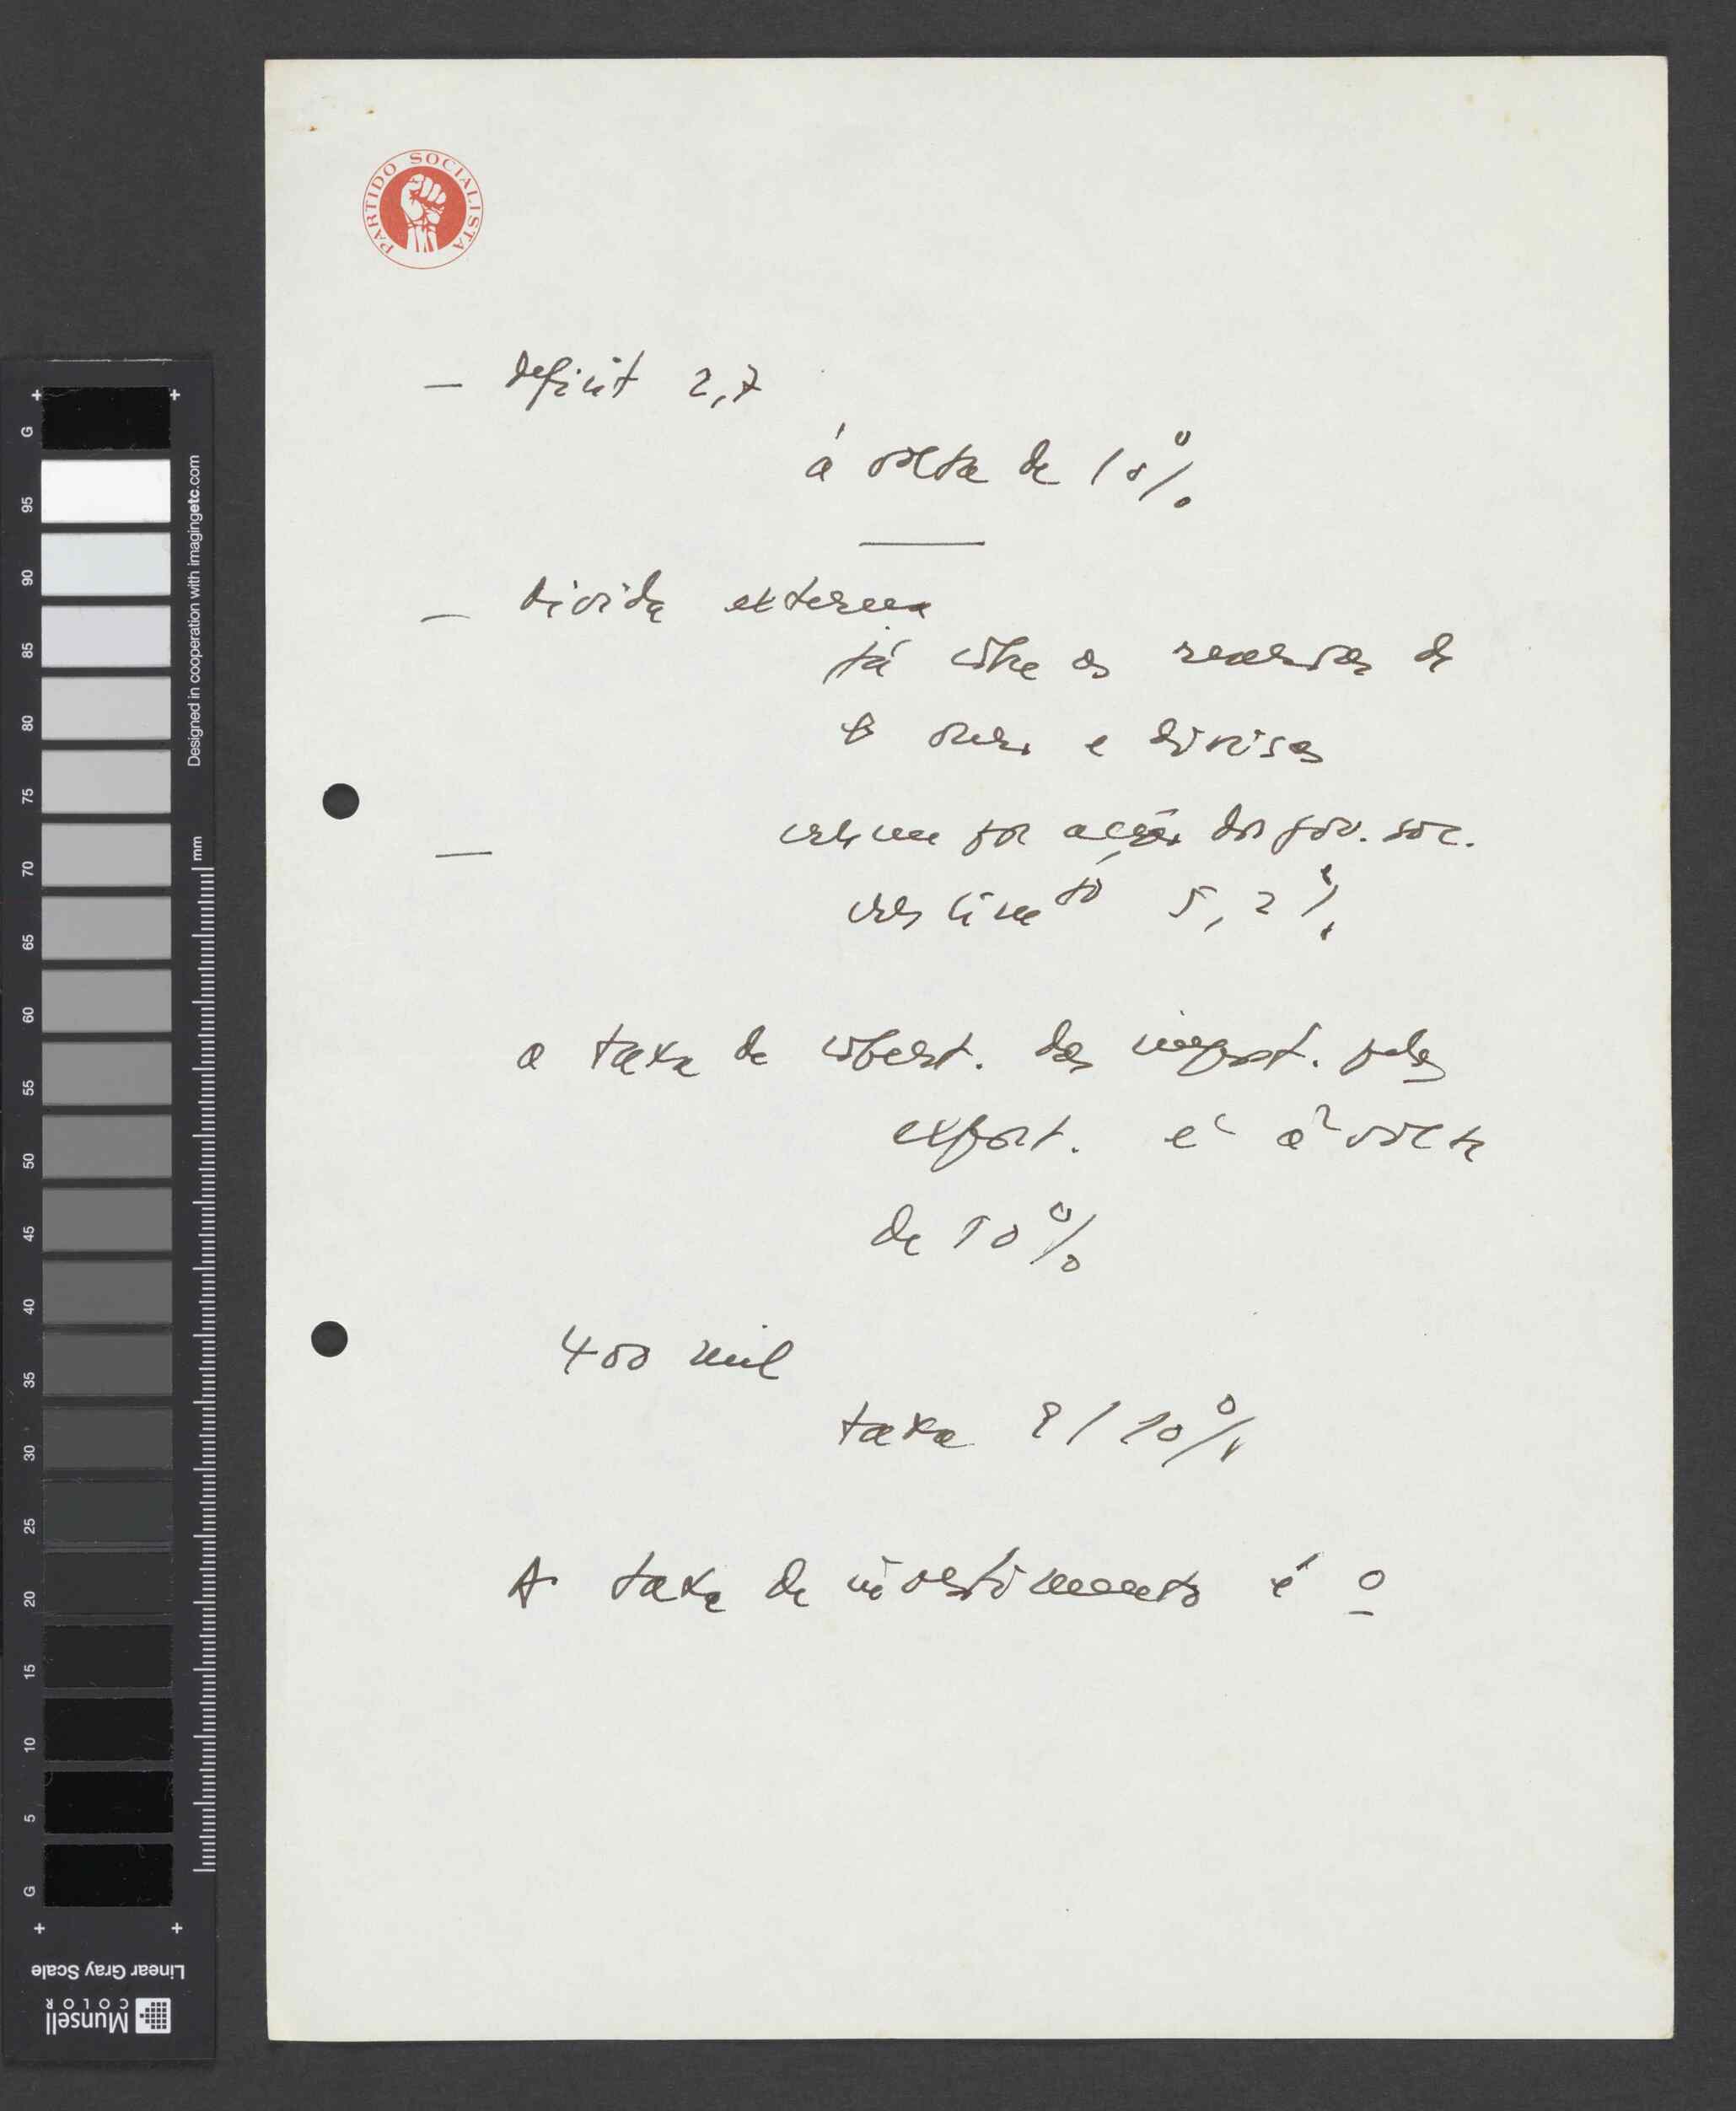 PARTIDO SOCIALISTA
— deficit 2,7
á volta de 10%
— divida externa
já cobre as reservas de
ouro e divisas
— por acção dos gov. soc.
5,2%
a taxa de cobert. das import. pelas
export. é à volta
de 50%
400 mil
taxa 9/10%
A taxa de investimento é 0
Designed in cooperation with imagingetc.com
mm
G
95
90
85
80
75
70
65
60
55
50
45
40
35
30
25
20
15
10
5
G
Linear Gray Scale
Munsell
COLOR